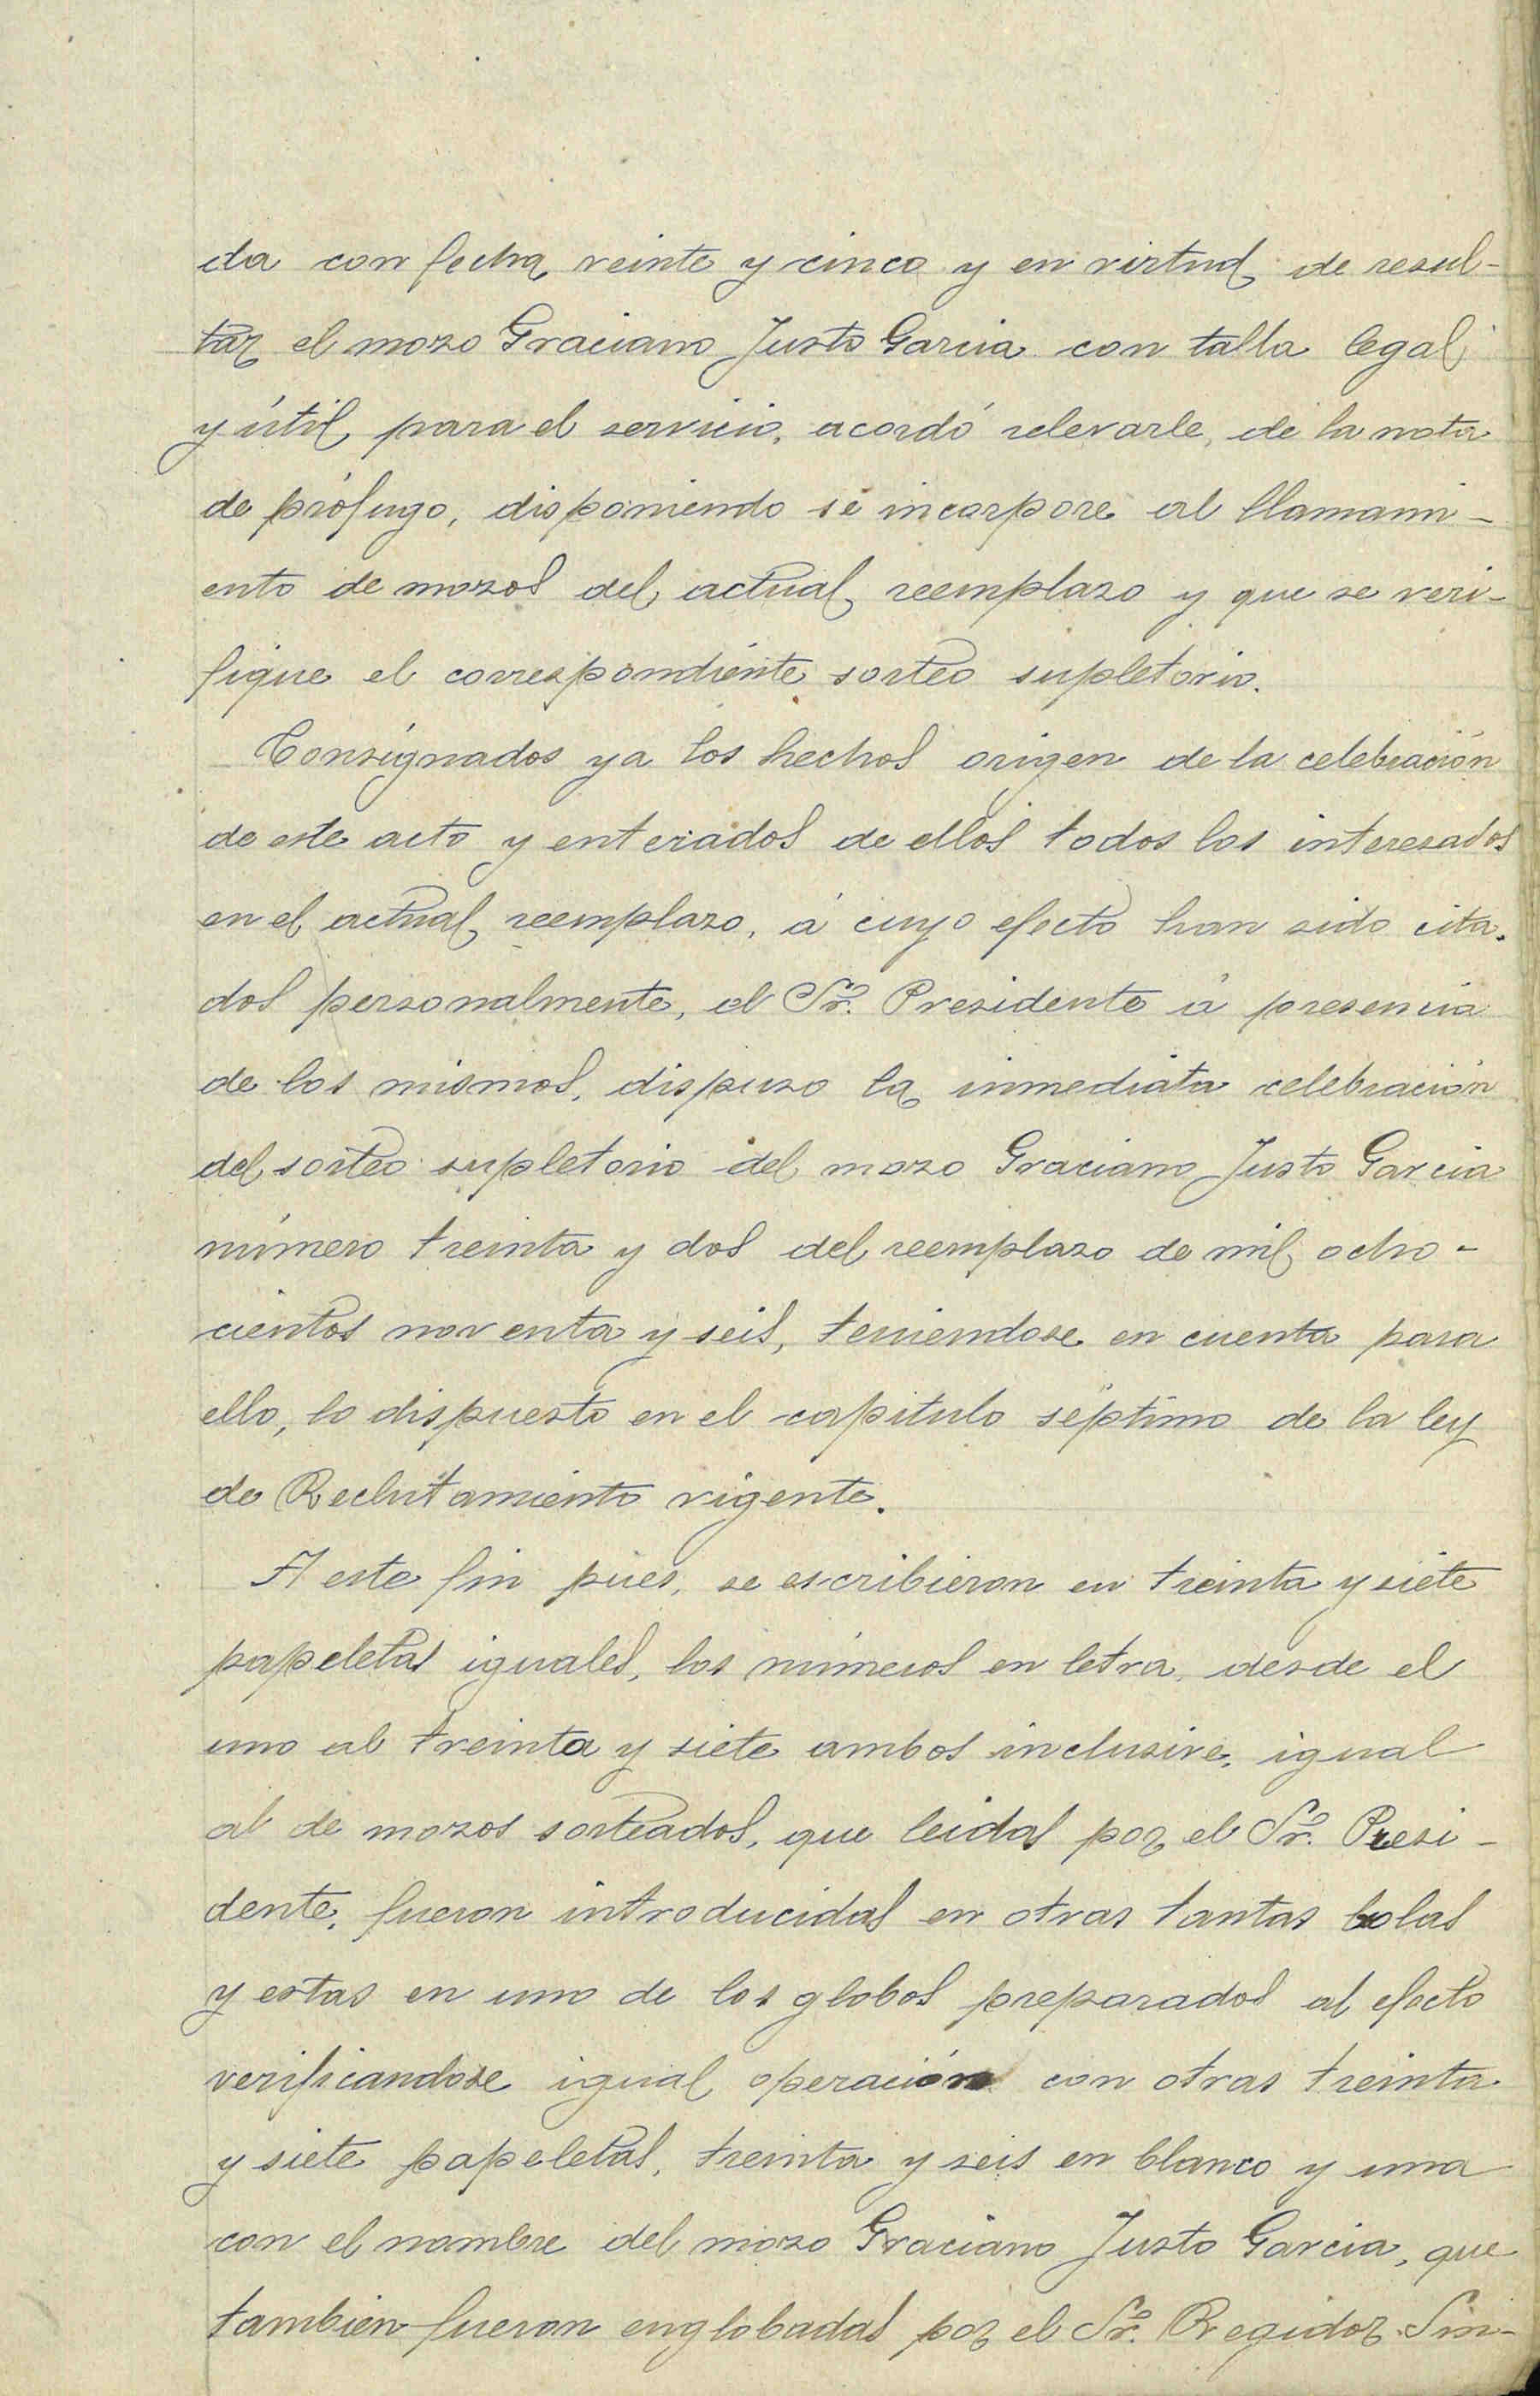 da con fecha veinte y cinco y en virtud de resul-
tar el mozo Graciano Justo Garcia con talla legal
y útil para el servicio, acordó relevarle, de la nota
de prófugo, disponiendo se incorpore al llamami-
ento de mozos del actual reemplazo y que se veri-
fique el correspondiente sorteo supletorio.
Consignados ya los hechos origen de la celebración
de este acto y enterados de ellos todos los interesados
en el actual reemplazo, á cuyo efecto han sido cita-
dos personalmente, el Sr. Presidente á presencia
de los mismos, dispuso la inmediata celebración
del sorteo supletorio del mozo Graciano Justo Garcia
número treinta y dos del reemplazo de mil ocho-
cientos noventa y seis, teniendose en cuenta para
ello, lo dispuesto en el capitulo séptimo de la ley
de Reclutamiento vigente.
A este fin pues, se escribieron en treinta y siete
papeletas iguales, los números en letra, desde el
uno al treinta y siete ambos inclusive, igual
al de mozos sorteados, que leidas por el Sr. Presi-
dente, fueron introducidas en otras tantas bolas
y estas en uno de los globos preparados al efecto
verificandose igual operación con otras treinta
y siete papeletas, treinta y seis en blanco y una
con el nombre del mozo Graciano Justo Garcia, que
tambien fueron englobadas por el Sr. Regidor Sin-